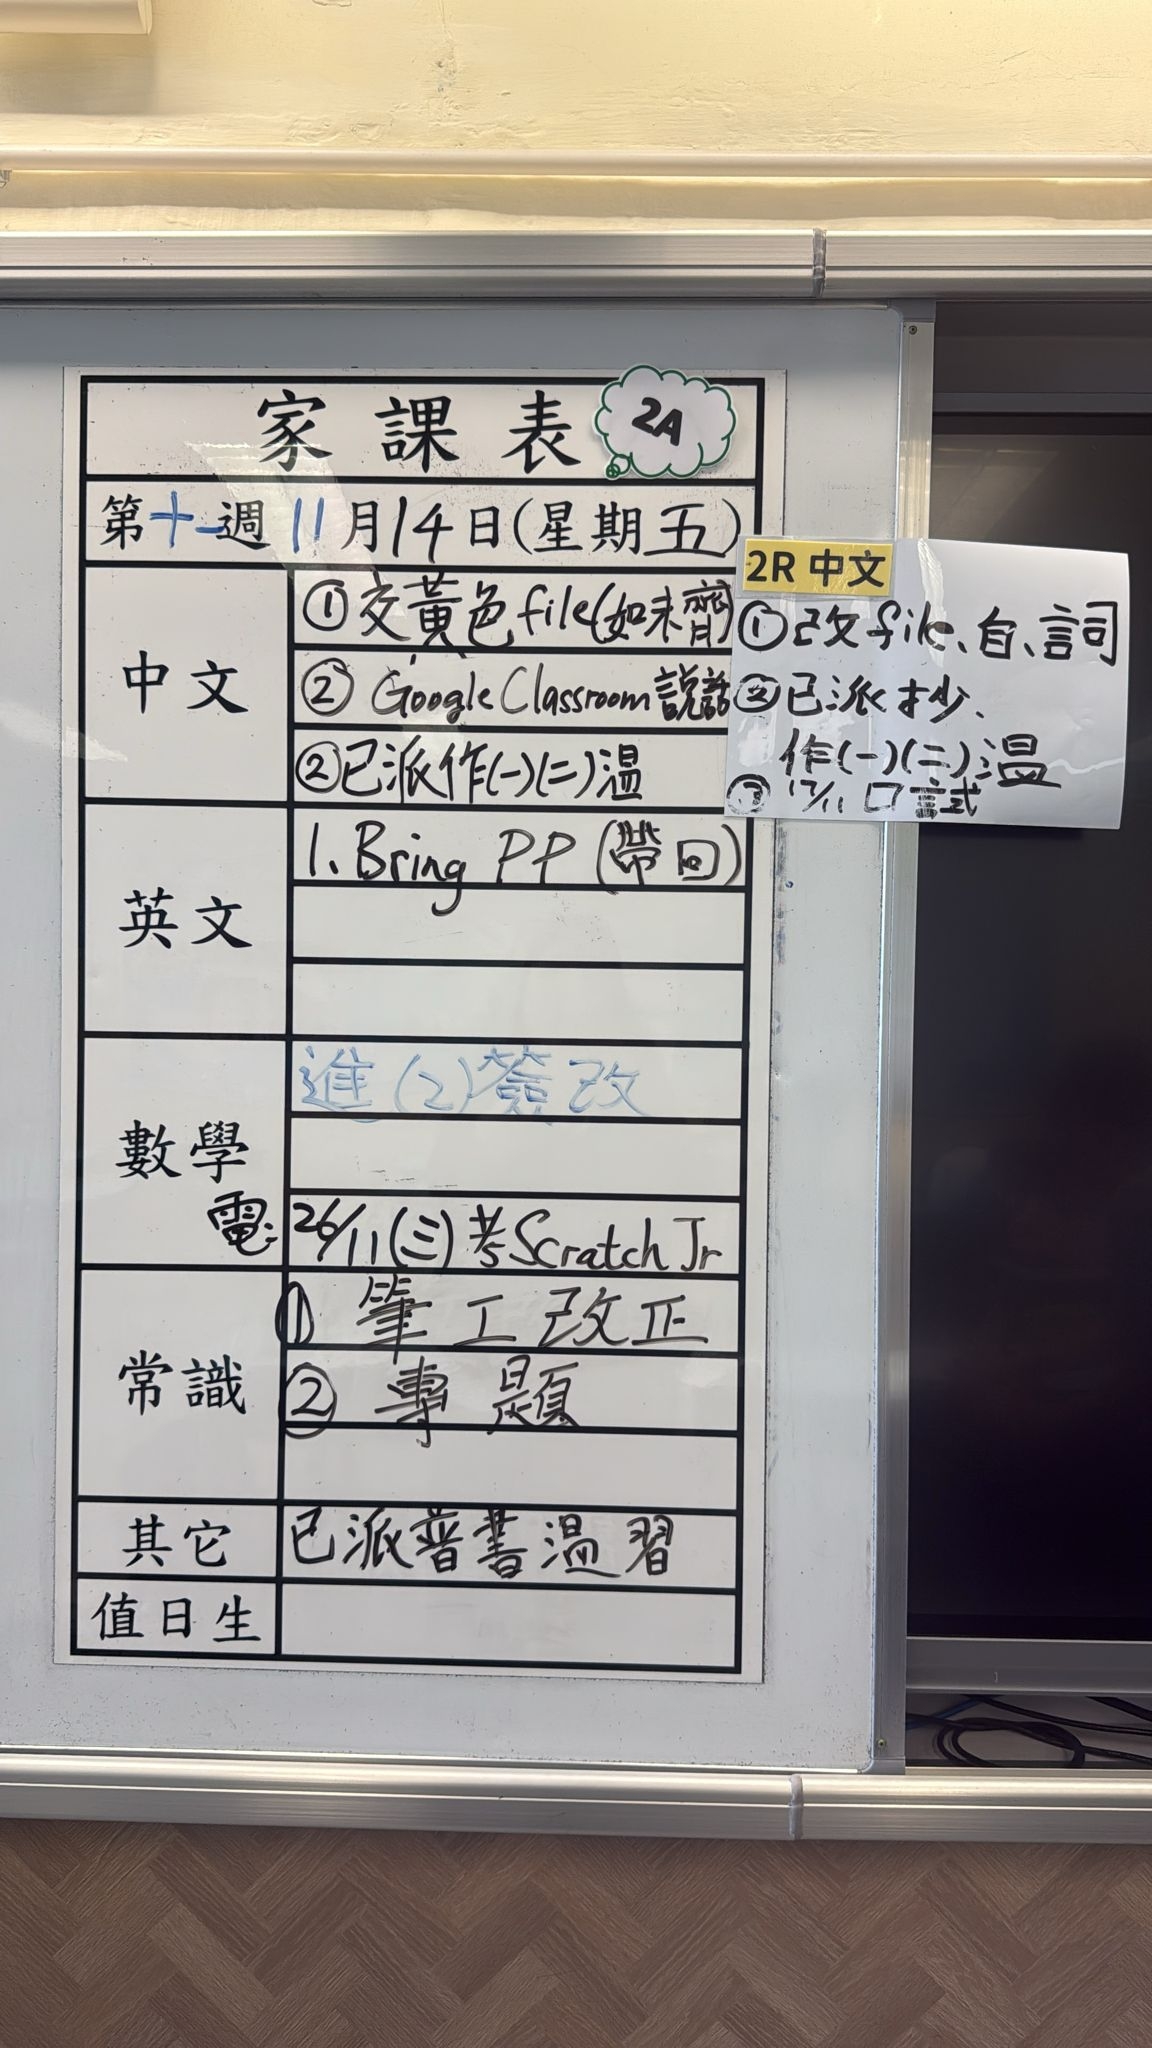 家課表 2A
第十一週 11月14日(星期五)
中文
①交黃色file(如未齊)
②Google Classroom說話
②已派作(一)(二)溫
2R 中文
①改file、自、詞
②已派抄、
作(一)(二)溫
③17/11 口試
英文
1. Bring PP (帶回)
數學
進(2)簽改
電
26/11(三)考Scratch Jr
常識
① 筆工改正
② 專題
其它
已派普書溫習
值日生